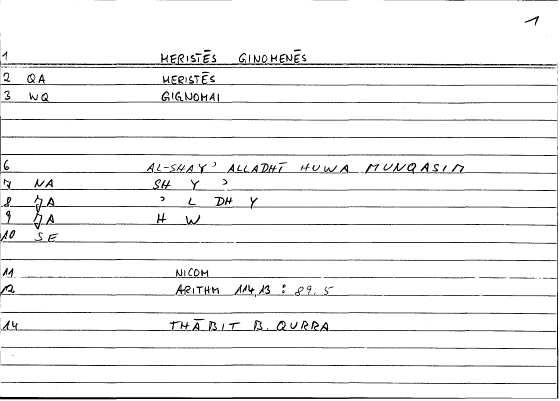 1
1 MERISTĒS GINOMENĒS
2 QA MERISTĒS
3 WQ GIGNOMAI
6 AL-SHAYʾ ALLADHĪ HUWA MUNQASIM
7 NA SH Y ʾ
8 A ʾ L DH Y
9 A H W
10 SE
11 NICOM
12 ARITHM 114,13 : 89.5
14 THĀBIT B. QURRA